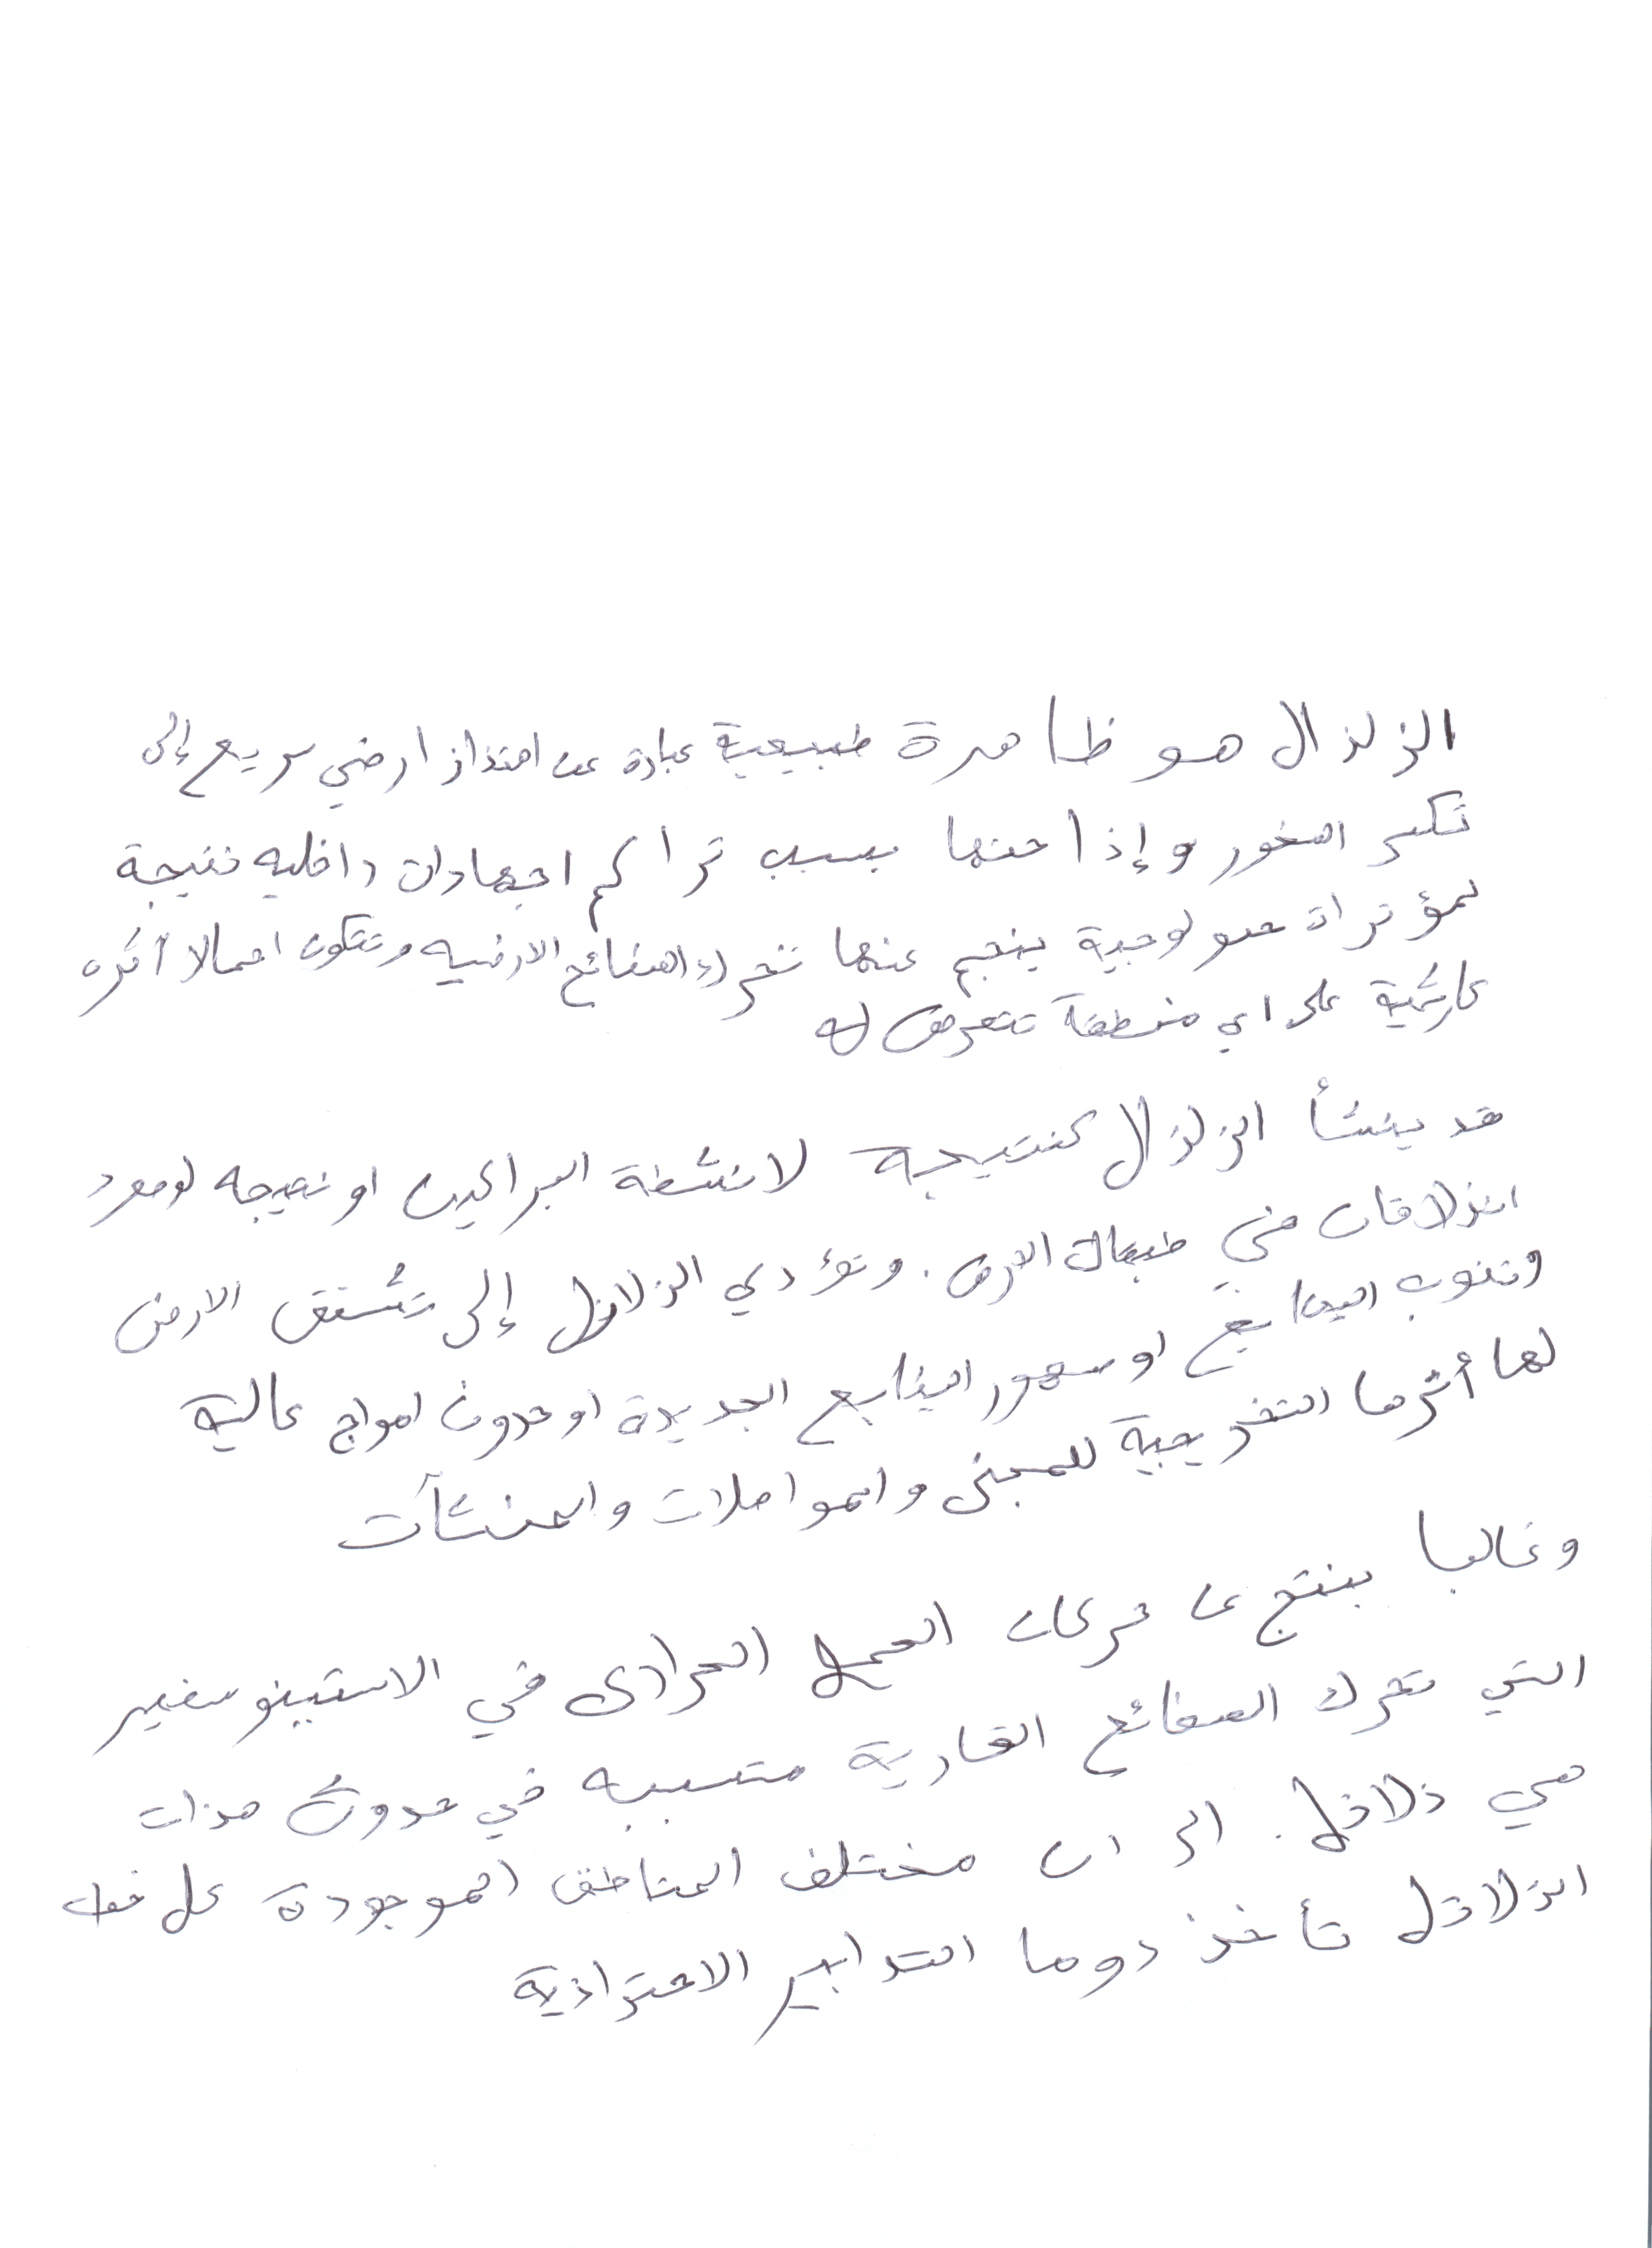 الزلزال هو ظاهرة طبيعية عبارة عن اهتزاز ارضي سريع إلى
تكسر الصخور وإزاحتها بسبب تراكم اجهادات داخليه نتيجة
لمؤثرات جيولوجية ينجم عنها تحرك الصفائح الارضيه وتتكون اعمالا أثره
كارثية على اي منطقة تتعرض له
قد ينشأ الزلزال كنتيجة لانشطة البراكين او نتيجه لوجود
انزلاقات في طبقات الارض. وتؤدي الزلازل إلى تشقق الارض
ونضوب الينابيع او ظهور الينابيع الجديدة او حدوث امواج عالية
لها أثرها التخريبية للمبنى والمواصلات والمنشآت
وغالبا ينتج عن حركات الحمل الحراري في الاستينوسفير
التي تحرك الصفائح القارية متسببه في حدوث هزات
هي زلازل. الى ان مختلف المناطق الموجودة على خط
الزلازل تأخذ دوما التدابير الاحترازية